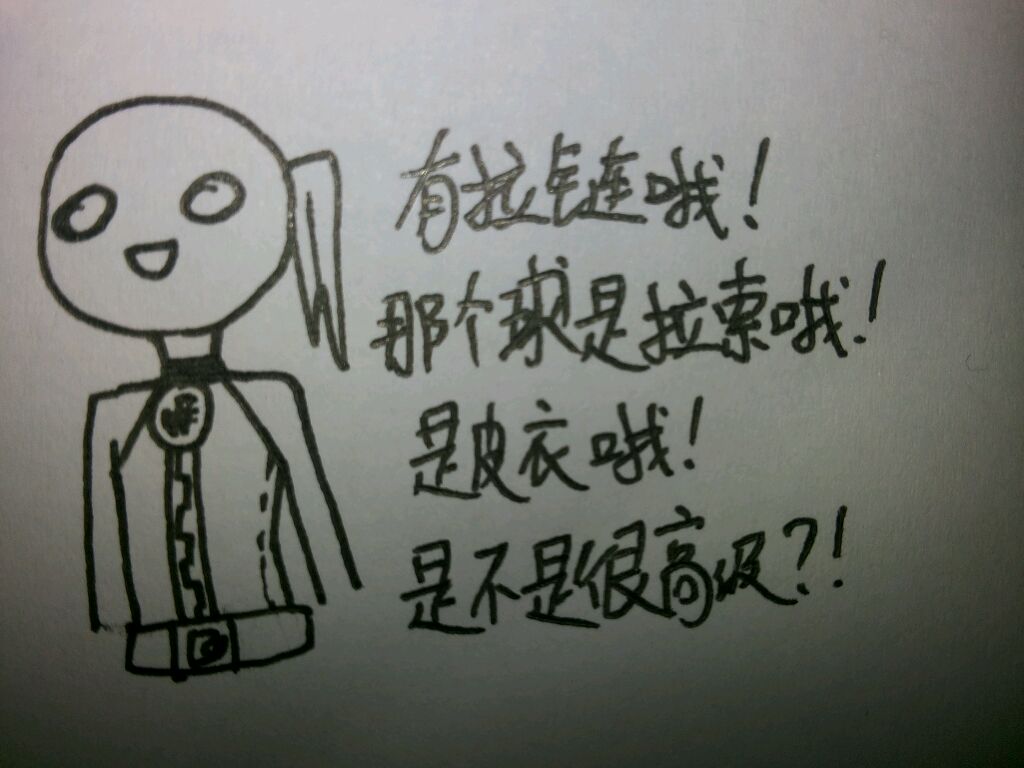 有拉链哦！
那个球是拉索哦！
是皮衣哦！
是不是很高级？！